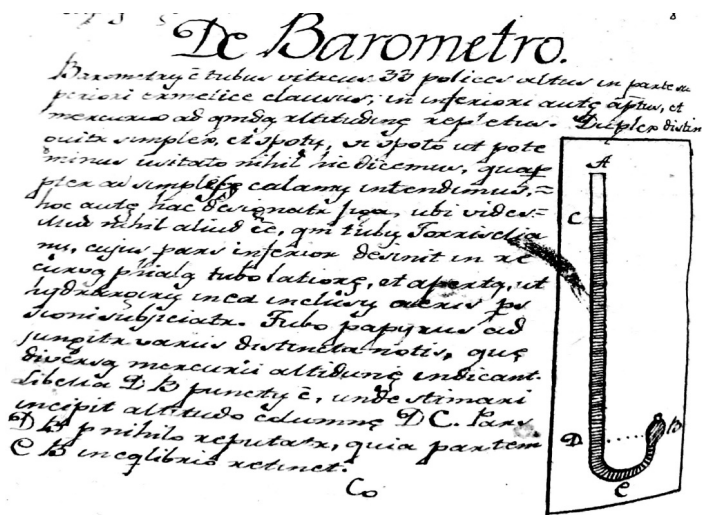 8
De Barometro.
Barometrų ē tubus vitreus 33 polices altus in parte su
periori ermelice clausus, in inferiori autę aptus, et
mercurio ad qmdą altitudinę repletus. Duplex distin
quitr simplex, et spotų, si spoto ut pote
minus usitato nihil hic dicemus, quap
pter ad simplex calamų intendimus, =
hoc autę hac designatr figa, ubi vides =
Mud nihil aliud ēē, qm tubų Torriselia
nų, cujus pars inferior desinit in re
curvą phialą tubo latiorę, et apertą, ut
hydrargirų in ea inclusų aeris ps
sioni subjiciatr. Tubo papyrus ad
jungitr variis distincta notis, quę
diversą mercurii altidunę indicant.
Libella D B punctų ē, unde stimari
incipit altitudo columnę D C. Pars
D B p nihilo reputatr, quia partem
C B in eqlibrio retinet.
Co
A
C
D
B
C